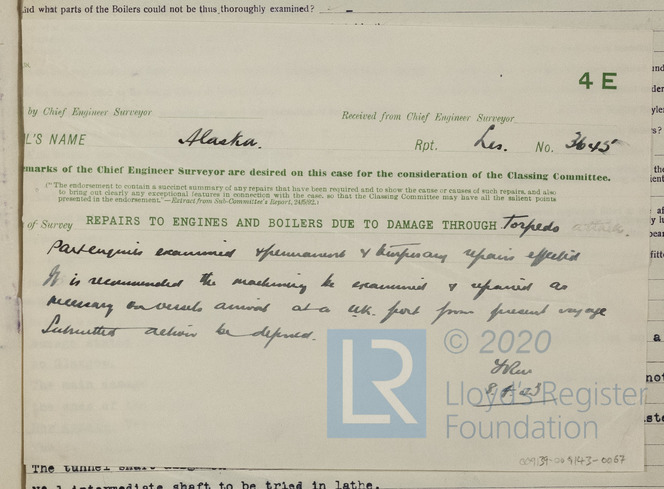 nd what parts of the Boilers could not be thus thoroughly examined?
4 E
by Chief Engineer Surveyor
Received from Chief Engineer Surveyor
L'S NAME Alaska. Rpt. Les. No. 3645
marks of the Chief Engineer Surveyor are desired on this case for the consideration of the Classing Committee.
("The endorsement to contain a succinct summary of any repairs that have been required and to show the cause or causes of such repairs, and also
to bring out clearly any exceptional features in connection with the case, so that the Classing Committee may have all the salient points
presented in the endorsement."—Extract from Sub-Committee's Report, 24/5/92.)
of Survey REPAIRS TO ENGINES AND BOILERS DUE TO DAMAGE THROUGH Torpedo attack.
Part engines examined & permanent & temporary repairs effected
It is recommended the machinery be examined & repaired as
necessary on vessels arrival at a U.K. port from present voyage
Submitted action be deferred.
LR
© 2020
Lloyd's Register
Foundation
00939-009143-0067
The tunnel shaft
No.1 intermediate shaft to be tried in lathe.